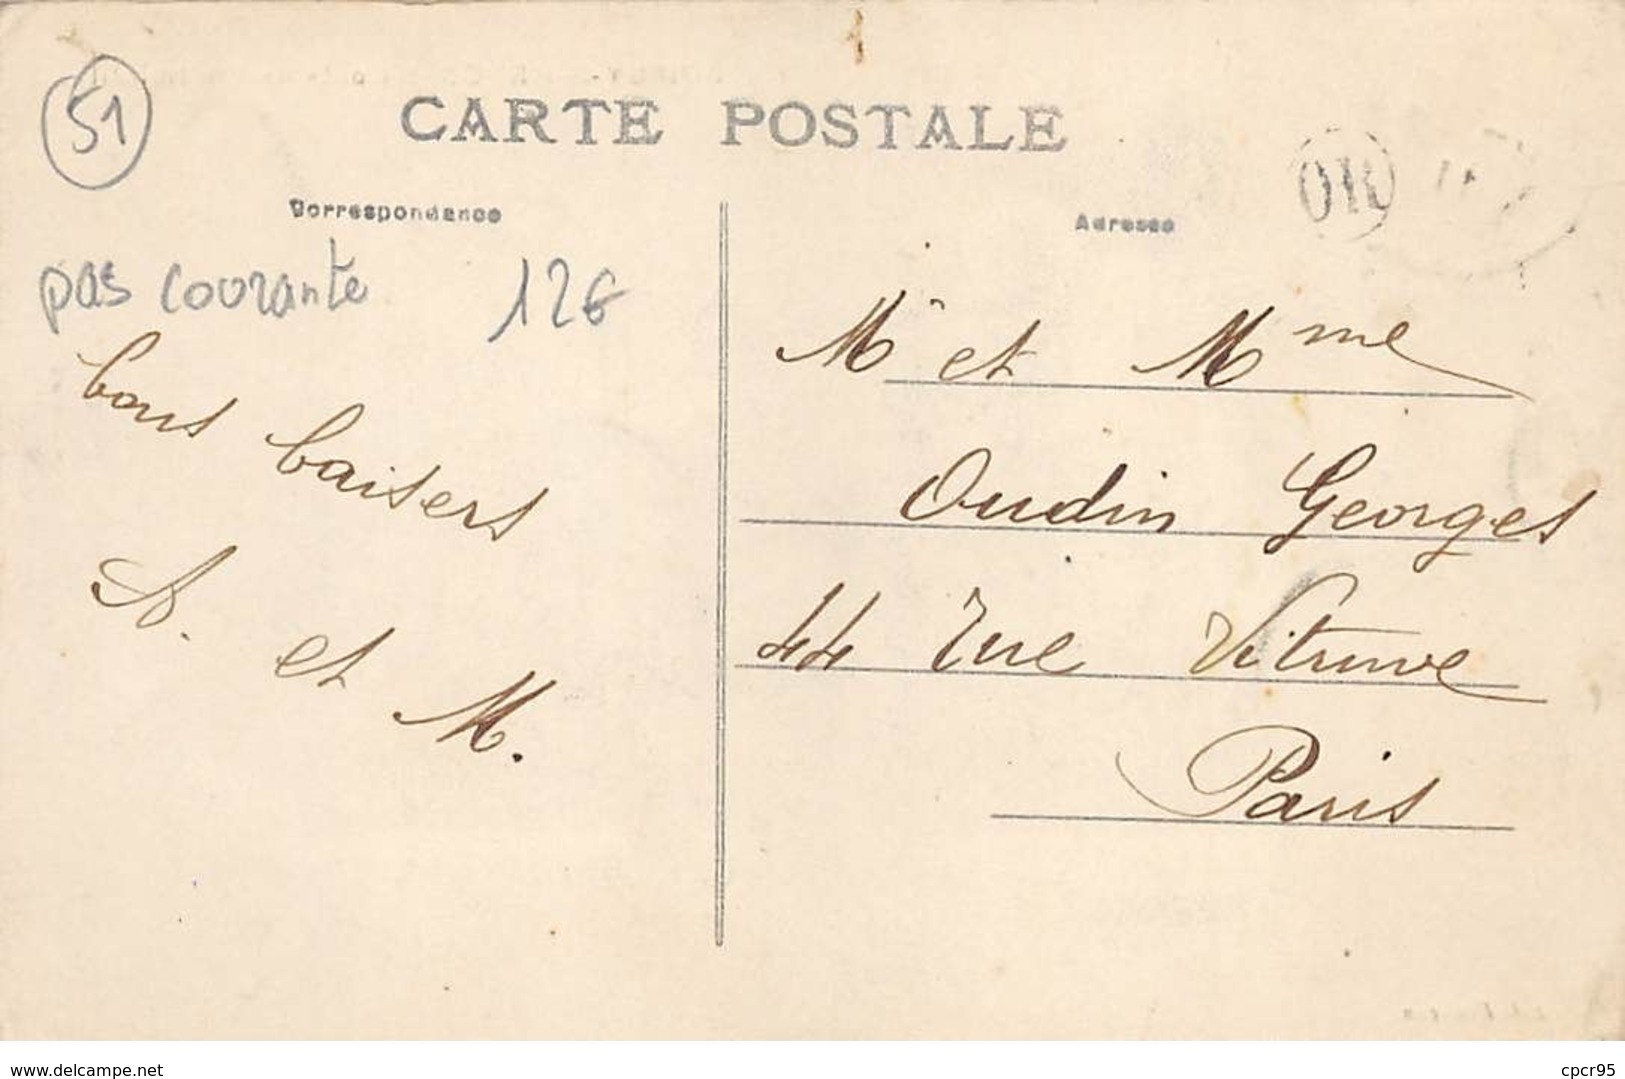 51
CARTE POSTALE
Correspondance
Adresse
OR
pas courante 12€
bons baisers
A. et M.
Mr et Mme
Oudin Georges
44 rue Vitruve
Paris
www.delcampe.net
cpcr95